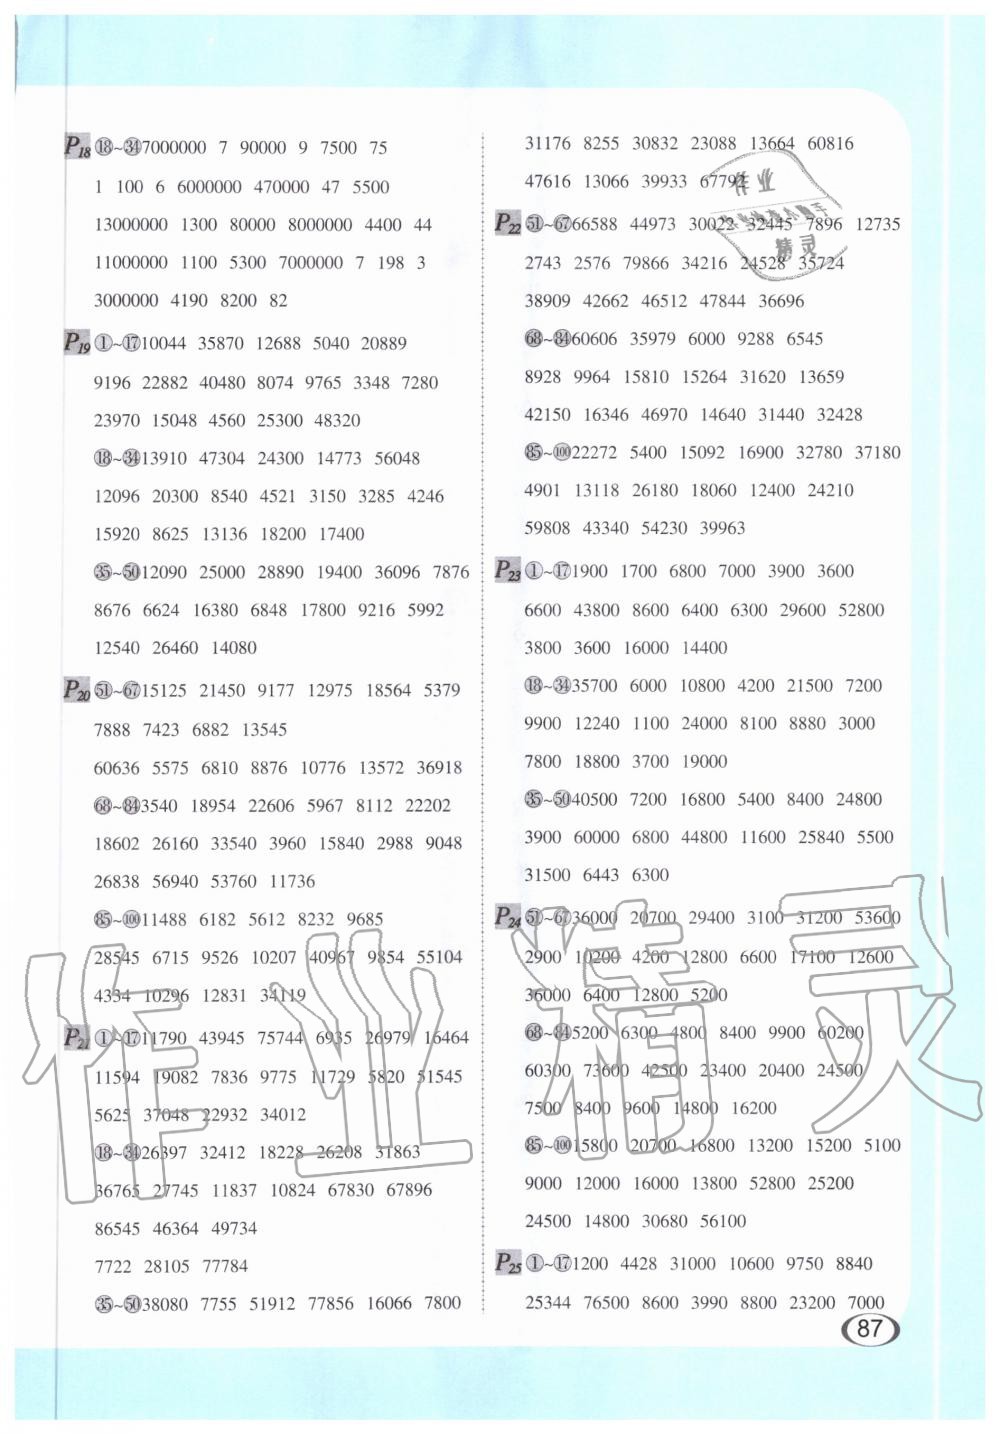 P18 ⑱~㉞7000000 7 90000 9 7500 75
1 100 6 6000000 470000 47 5500
13000000 1300 80000 8000000 4400 44
11000000 1100 5300 7000000 7 198 3
3000000 4190 8200 82
P19 ①~⑰10044 35870 12688 5040 20889
9196 22882 40480 8074 9765 3348 7280
23970 15048 4560 25300 48320
⑱~㉞13910 47304 24300 14773 56048
12096 20300 8540 4521 3150 3285 4246
15920 8625 13136 18200 17400
㉟~㊿12090 25000 28890 19400 36096 7876
8676 6624 16380 6848 17800 9216 5992
12540 26460 14080
P20 51~67 15125 21450 9177 12975 18564 5379
7888 7423 6882 13545
60636 5575 6810 8876 10776 13572 36918
68~84 3540 18954 22606 5967 8112 22202
18602 26160 33540 3960 15840 2988 9048
26838 56940 53760 11736
85~100 11488 6182 5612 8232 9685
28545 6715 9526 10207 40967 9854 55104
4334 10296 12831 34119
P21 ①~⑰11790 43945 75744 6935 26979 16464
11594 19082 7836 9775 11729 5820 51545
5625 37048 22932 34012
⑱~㉞26397 32412 18228 26208 31863
36765 27745 11837 10824 67830 67896
86545 46364 49734
7722 28105 77784
㉟~㊿38080 7755 51912 77856 16066 7800
31176 8255 30832 23088 13664 60816
47616 13066 39933 67792
P22 51~67 66588 44973 30022 32445 7896 12735
2743 2576 79866 34216 24528 35724
38909 42662 46512 47844 36696
68~84 60606 35979 6000 9288 6545
8928 9964 15810 15264 31620 13659
42150 16346 46970 14640 31440 32428
85~100 22272 5400 15092 16900 32780 37180
4901 13118 26180 18060 12400 24210
59808 43340 54230 39963
P23 ①~⑰1900 1700 6800 7000 3900 3600
6600 43800 8600 6400 6300 29600 52800
3800 3600 16000 14400
⑱~㉞35700 6000 10800 4200 21500 7200
9900 12240 1100 24000 8100 8880 3000
7800 18800 3700 19000
㉟~㊿40500 7200 16800 5400 8400 24800
3900 60000 6800 44800 11600 25840 5500
31500 6443 6300
P24 51~67 36000 20700 29400 3100 31200 53600
2900 10200 4200 12800 6600 17100 12600
36000 6400 12800 5200
68~84 5200 6300 4800 8400 9900 60200
60300 73600 42500 23400 20400 24500
7500 8400 9600 14800 16200
85~100 15800 20700 16800 13200 15200 5100
9000 12000 16000 13800 52800 25200
24500 14800 30680 56100
P25 ①~⑰1200 4428 31000 10600 9750 8840
25344 76500 8600 3990 8800 23200 7000
87
作业
精灵
作业精灵